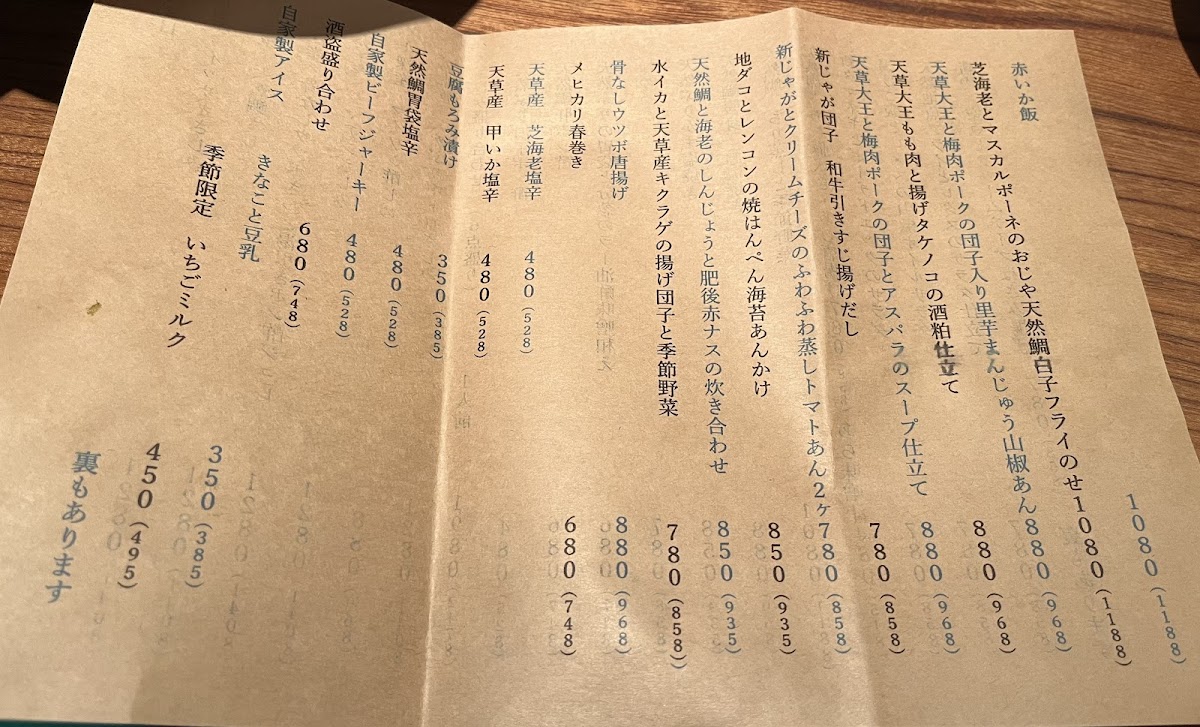 赤いか飯 1080(1188)
芝海老とマスカルポーネのおじや天然鯛白子フライのせ1080(1188)
天草大王と梅肉ポークの団子入り里芋まんじゅう山椒あん880(968)
天草大王もも肉と揚げタケノコの酒粕仕立て 880(968)
天草大王と梅肉ポークの団子とアスパラのスープ仕立て 880(968)
新じゃが団子 和牛引きすじ揚げだし 780(858)
新じゃがとクリームチーズのふわふわ蒸しトマトあん2ヶ780(858)
地ダコとレンコンの焼はんぺん海苔あんかけ 850(935)
天然鯛と海老のしんじょうと肥後赤ナスの炊き合わせ 850(935)
水イカと天草産キクラゲの揚げ団子と季節野菜 780(858)
骨なしウツボ唐揚げ 880(968)
メヒカリ春巻き 680(748)
天草産 芝海老塩辛 480(528)
天草産 甲いか塩辛 480(528)
豆腐もろみ漬け 350(385)
天然鯛胃袋塩辛 480(528)
自家製ビーフジャーキー 480(528)
酒盗盛り合わせ 680(748)
自家製アイス きなこと豆乳 350(385)
季節限定 いちごミルク 450(495)
裏もあります